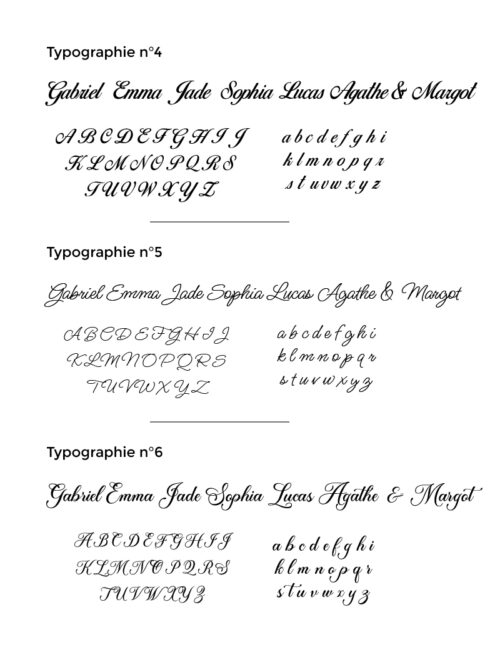 Typographie n°4
Gabriel Emma Jade Sophia Lucas Agathe & Margot
A B C D E F G H I J
K L M N O P Q R S
T U V W X Y Z
a b c d e f g h i
k l m n o p q r
s t u v w x y z
Typographie n°5
Gabriel Emma Jade Sophia Lucas Agathe & Margot
A B C D E F G H I J
K L M N O P Q R S
T U V W X Y Z
a b c d e f g h i
k l m n o p q r
s t u v w x y z
Typographie n°6
Gabriel Emma Jade Sophia Lucas Agathe & Margot
A B C D E F G H I J
K L M N O P Q R S
T U V W X Y Z
a b c d e f g h i
k l m n o p q r
s t u v w x y z